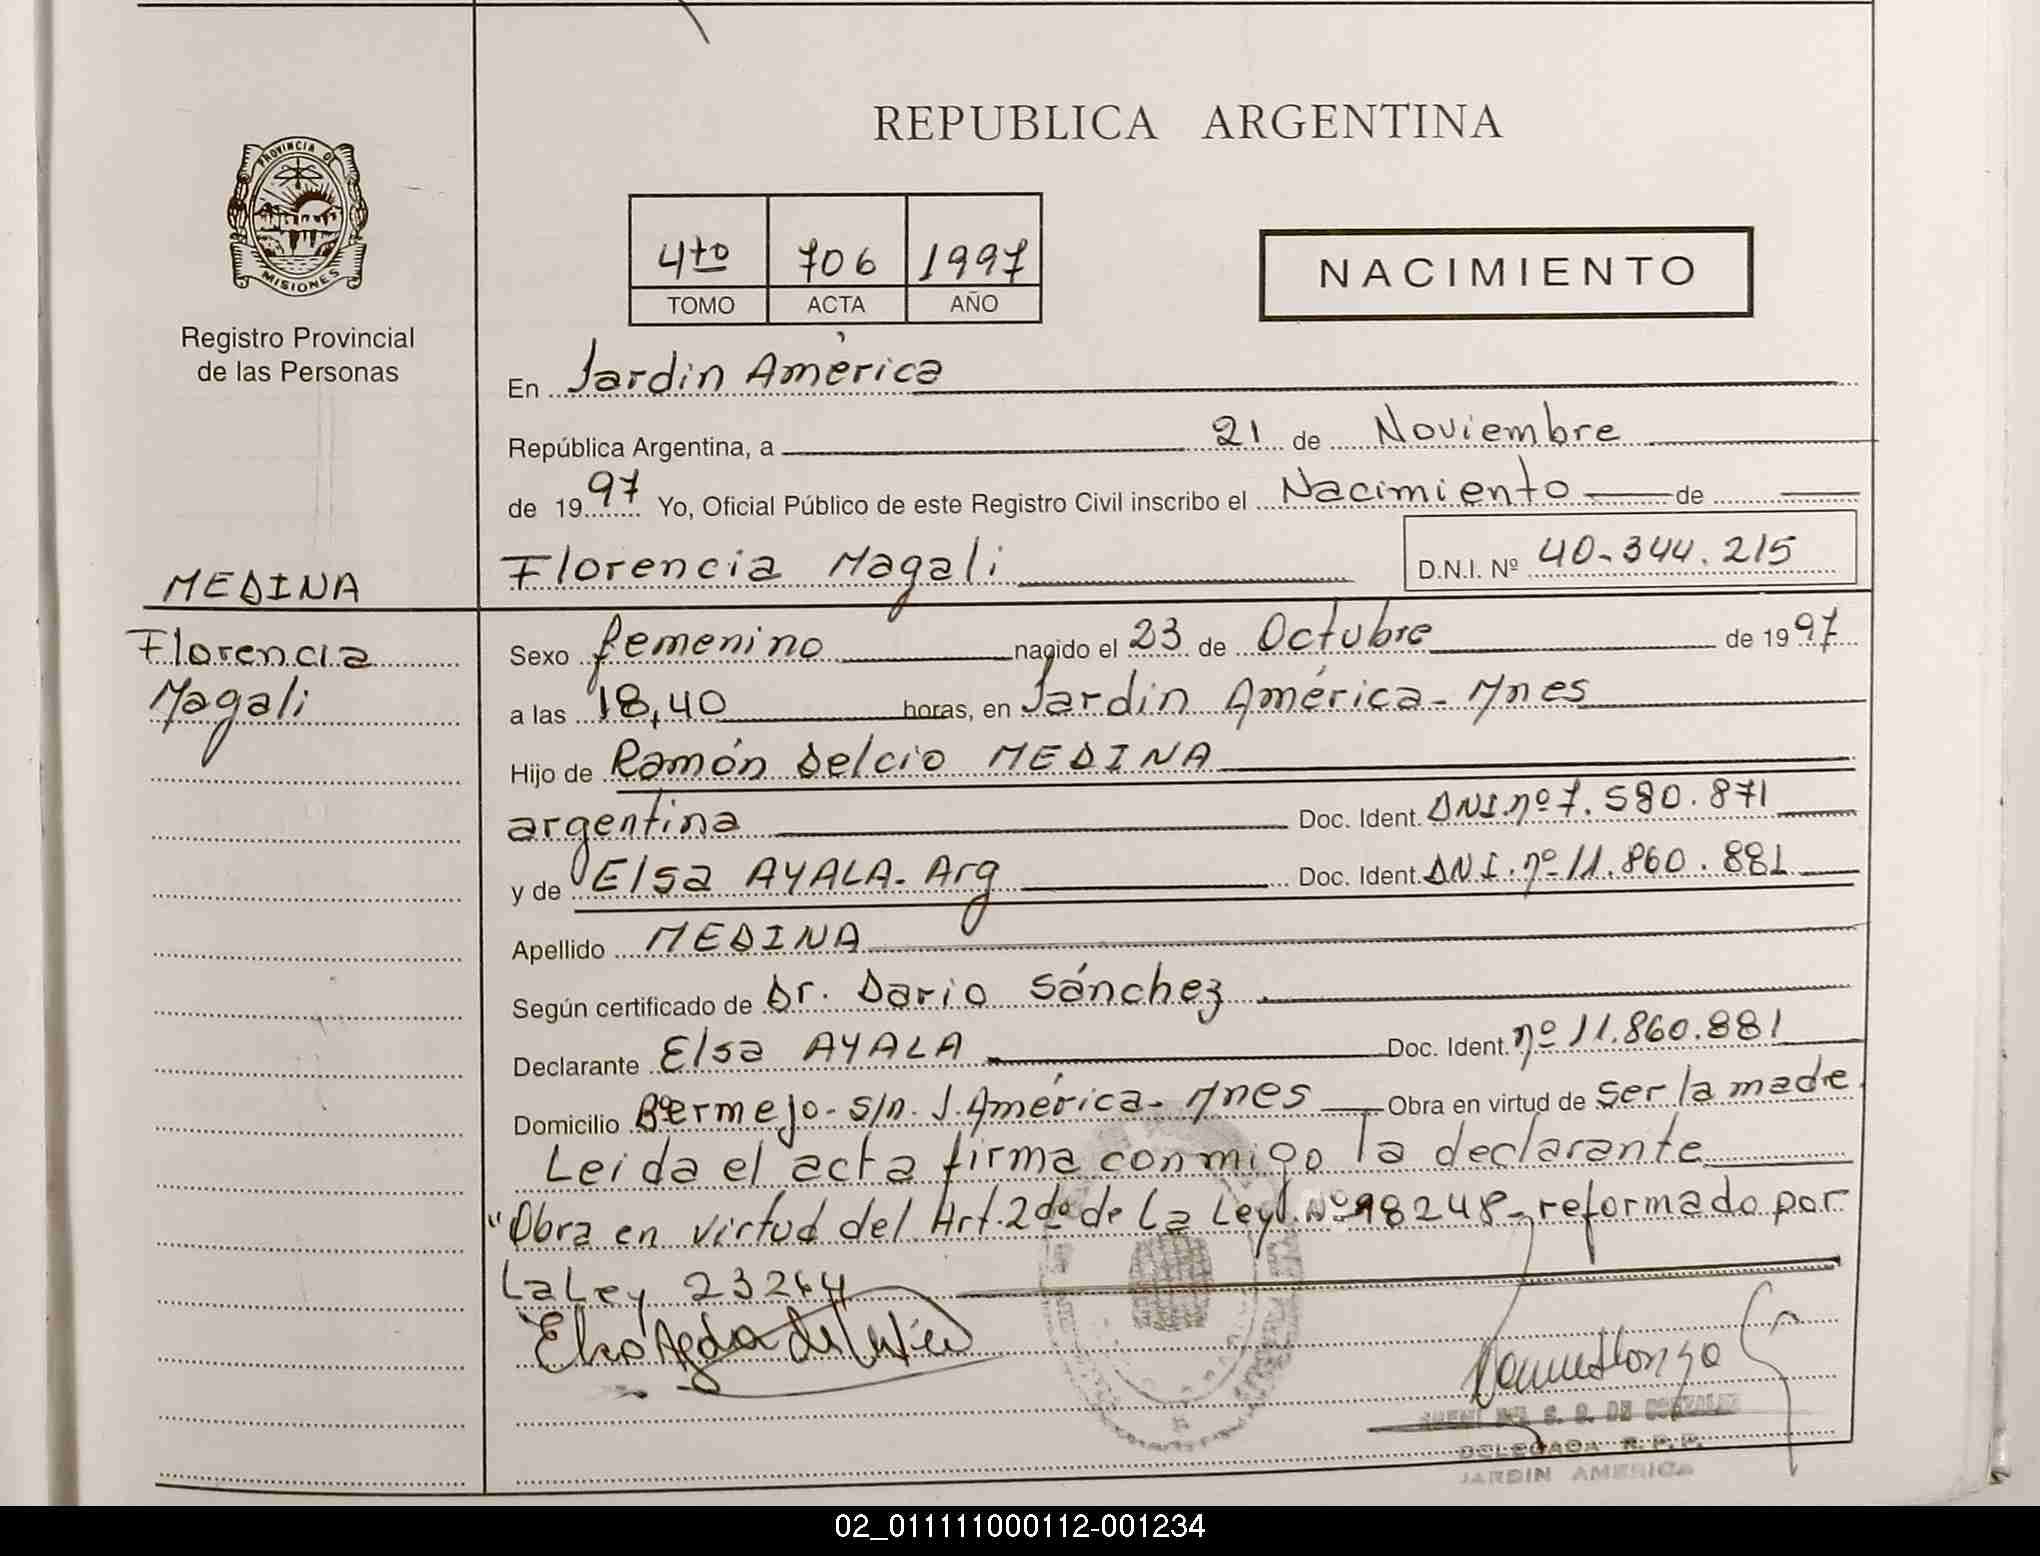 REPUBLICA ARGENTINA
PROVINCIA DE
MISIONES
Registro Provincial
de las Personas
4to 706 1997
TOMO ACTA AÑO
NACIMIENTO
En Jardín América
República Argentina, a 21 de Noviembre
de 1997 Yo, Oficial Público de este Registro Civil inscribo el Nacimiento de
Florencia Magali D.N.I. Nº 40.344.215
MEDINA
Florencia
Magali
Sexo femenino nacido el 23 de Octubre de 1997
a las 18,40 horas, en Jardin América - Mnes
Hijo de Ramón Delcio MEDINA
argentina Doc. Ident. DNI. nº 7.580.871
y de Elsa AYALA - Arg Doc. Ident. DNI. nº 11.860.881
Apellido MEDINA
Según certificado de Dr. Dario Sánchez
Declarante Elsa AYALA Doc. Ident. nº 11.860.881
Domicilio Bermejo - s/n. J. América - Mnes Obra en virtud de ser la madre
Leida el acta firma conmigo la declarante
"Obra en virtud del Art. 2do de la Ley Nº 18248 - reformado por
La Ley 23264
S. G. DE GONZALEZ
DELEGADA R.P.P.
JARDIN AMERICA
02_011111000112-001234